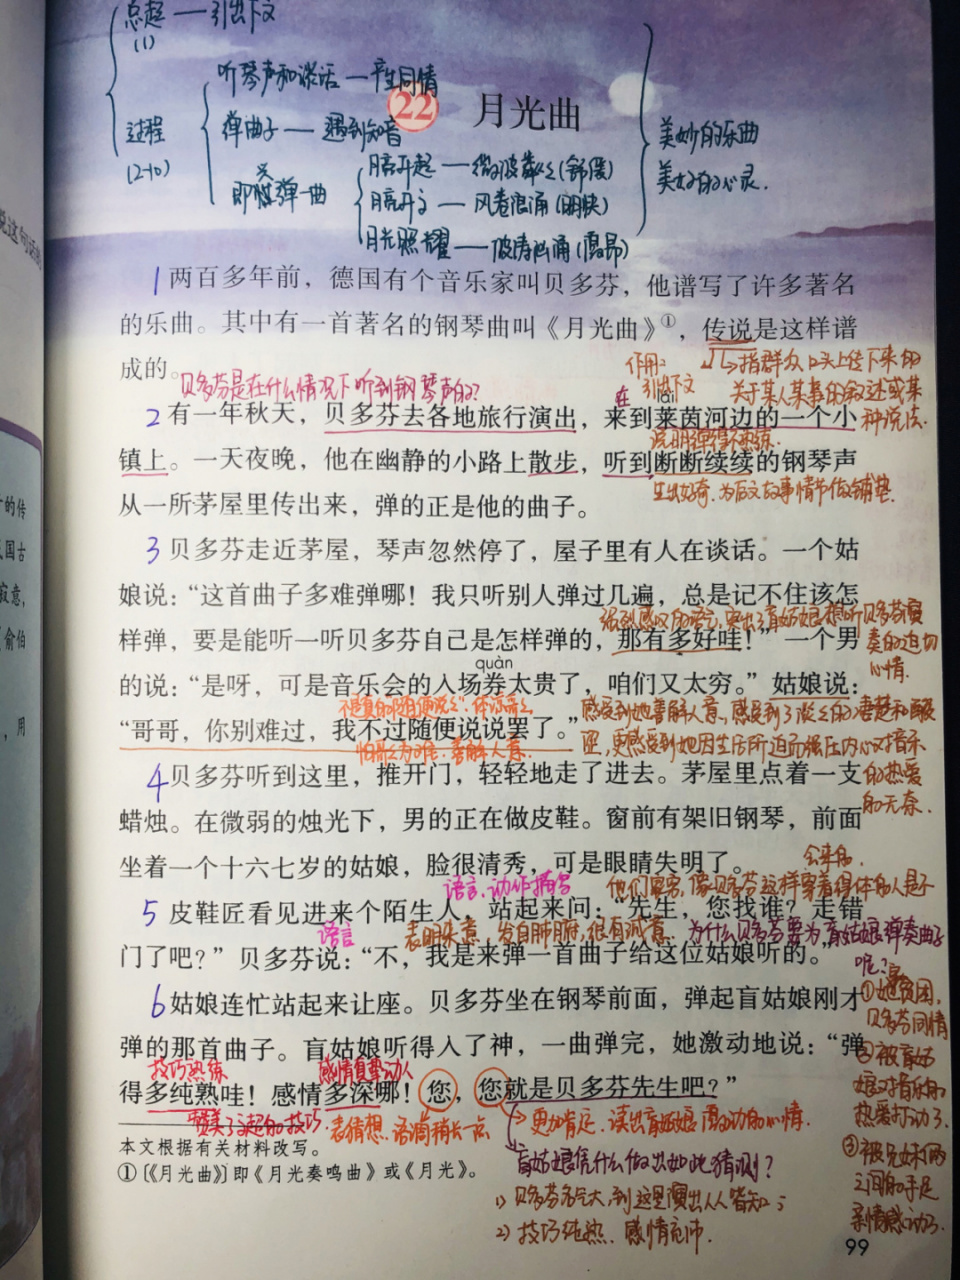 总起——引出下文
(1)
听琴声和谈话——产生同情
22 月光曲
过程
弹曲子——遇到知音
美妙的乐曲
(2-10)
月亮升起——微波粼粼(舒缓)
美好的心灵.
即兴弹一曲
月亮升高——风卷浪涌(明快)
月光照耀——波涛汹涌(高昂)
说这句话的
1 两百多年前，德国有个音乐家叫贝多芬，他谱写了许多著名
的乐曲。其中有一首著名的钢琴曲叫《月光曲》①，传说是这样谱
成的。
作用：
引出下文
指群众口头上传下来的
关于某人某事的叙述或某
种说法.
贝多芬是在什么情况下听到钢琴声的?
在 lái
2 有一年秋天，贝多芬去各地旅行演出，来到莱茵河边的一个小
说明弹得不熟练.
镇上。一天夜晚，他在幽静的小路上散步，听到断断续续的钢琴声
生出好奇.为后文故事情节做铺垫.
从一所茅屋里传出来，弹的正是他的曲子。
3 贝多芬走近茅屋，琴声忽然停了，屋子里有人在谈话。一个姑
娘说：“这首曲子多难弹哪！我只听别人弹过几遍，总是记不住该怎
强烈感叹的语气,突出了盲姑娘想听贝多芬演
奏的迫切
心情.
样弹，要是能听一听贝多芬自己是怎样弹的，那有多好哇！”一个男
quàn
的说：“是呀，可是音乐会的入场券太贵了，咱们又太穷。”姑娘说：
不是真的“随便说说”.体谅哥哥
“哥哥，你别难过，我不过随便说说罢了。”
怕哥哥为难.善解人意.
感受到她善解人意,感受到了淡淡的凄楚和酸
更感受到她因生活所迫而强压内心对音乐
的热爱
的无奈.
4 贝多芬听到这里，推开门，轻轻地走了进去。茅屋里点着一支
蜡烛。在微弱的烛光下，男的正在做皮鞋。窗前有架旧钢琴，前面
坐着一个十六七岁的姑娘，脸很清秀，可是眼睛失明了。
语言、动作描写
他们家穷,像贝多芬这样穿着得体的人是不
会来的.
5 皮鞋匠看见进来个陌生人，站起来问：“先生，您找谁？走错
语言
表明来意,发自肺腑,很有诚意.
门了吧？”贝多芬说：“不，我是来弹一首曲子给这位姑娘听的。”
为什么贝多芬要为盲姑娘弹奏曲子
呢?
①她家贫困,
贝多芬同情
②被盲姑
娘对音乐的
热爱打动了.
③被兄妹俩
之间的手足
亲情感动了.
6 姑娘连忙站起来让座。贝多芬坐在钢琴前面，弹起盲姑娘刚才
弹的那首曲子。盲姑娘听得入了神，一曲弹完，她激动地说：“弹
技巧熟练
感情真挚动人
得多纯熟哇！感情多深哪！您，您就是贝多芬先生吧？”
赞美了
表猜想.语调稍长一点
更加肯定.读出盲姑娘激动的心情.
本文根据有关材料改写。
①〔《月光曲》〕即《月光奏鸣曲》或《月光》。
盲姑娘凭什么做出如此猜测?
1) 贝多芬名气大,到这里演出人人皆知;
2) 技巧纯熟.感情充沛.
99